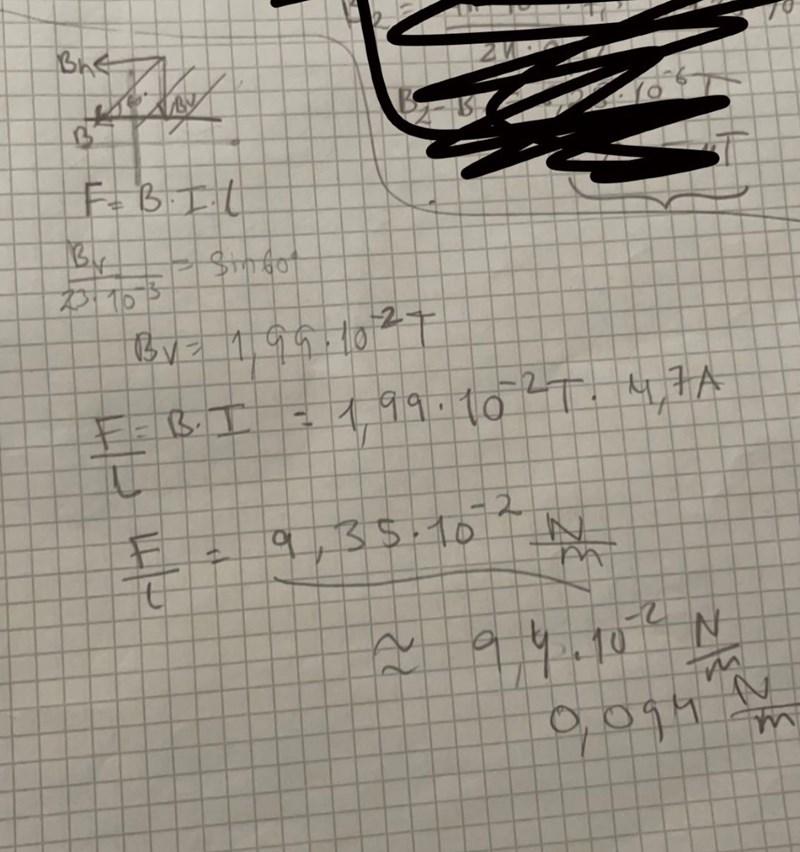 2π
· 10⁻⁶ T
T
Bh
Bv
B
F = B · I · l
Bv / 23 · 10⁻³ = sin 60°
Bv = 1,99 · 10⁻² T
F / L = B · I = 1,99 · 10⁻² T · 4,7 A
F / L = 9,35 · 10⁻² N / m
≈ 9,4 · 10⁻² N / m
0,094 N / m